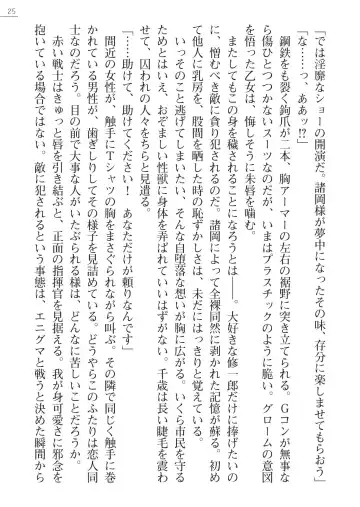 25
「では淫魔なショーの開演だ。諸岡様が夢中になったその味、存分に楽しませてもらおう」
「な……っ、ああッ!?」
鋼鉄をも裂く鉤爪が二本、胸アーマーの左右の裾野に突き立てられる。Gコンが無事な
ら傷ひとつつかないスーツなのだが、いまはプラスチックのように脆い。グロームの意図
を悟った乙女は、悔しそうに朱唇を噛む。
またしてもこの身を穢されることになろうとは――。大好きな修一郎だけに捧げたいの
に、憎むべき敵に貪り犯されるのだ。諸岡によって全裸同然に剥かれた記憶が蘇る。初め
て他人に乳房を、股間を晒した時の恥ずかしさは、未だにはっきりと覚えている。
いっそのこと逃げてしまいたい、そんな自堕落な想いが胸に広がる。いくら市民を守る
ためとはいえ、おぞましい性獣に身体を弄ばれていいはずがない。千歳は長い睫毛を震わ
せて、囚われの人々をちらと見遣る。
「……助けて、助けてください!　あなただけが頼りなんです」
間近の女性が、触手にTシャツの胸をまさぐられながら叫ぶ。その隣で同じく触手に巻
かれている男性が、歯ぎしりしてその様子を見詰めている。どうやらこのふたりは恋人同
士なのだろう。目の前で大事な人がいたぶられる様は、どんなに辛いことだろうか。
赤い戦士はきゅっと唇を引き結ぶと、正面の指揮官を見据える。我が身可愛さに邪念を
抱いている場合ではない。敵に犯されるという事態は、エニグマと戦うと決めた瞬間から